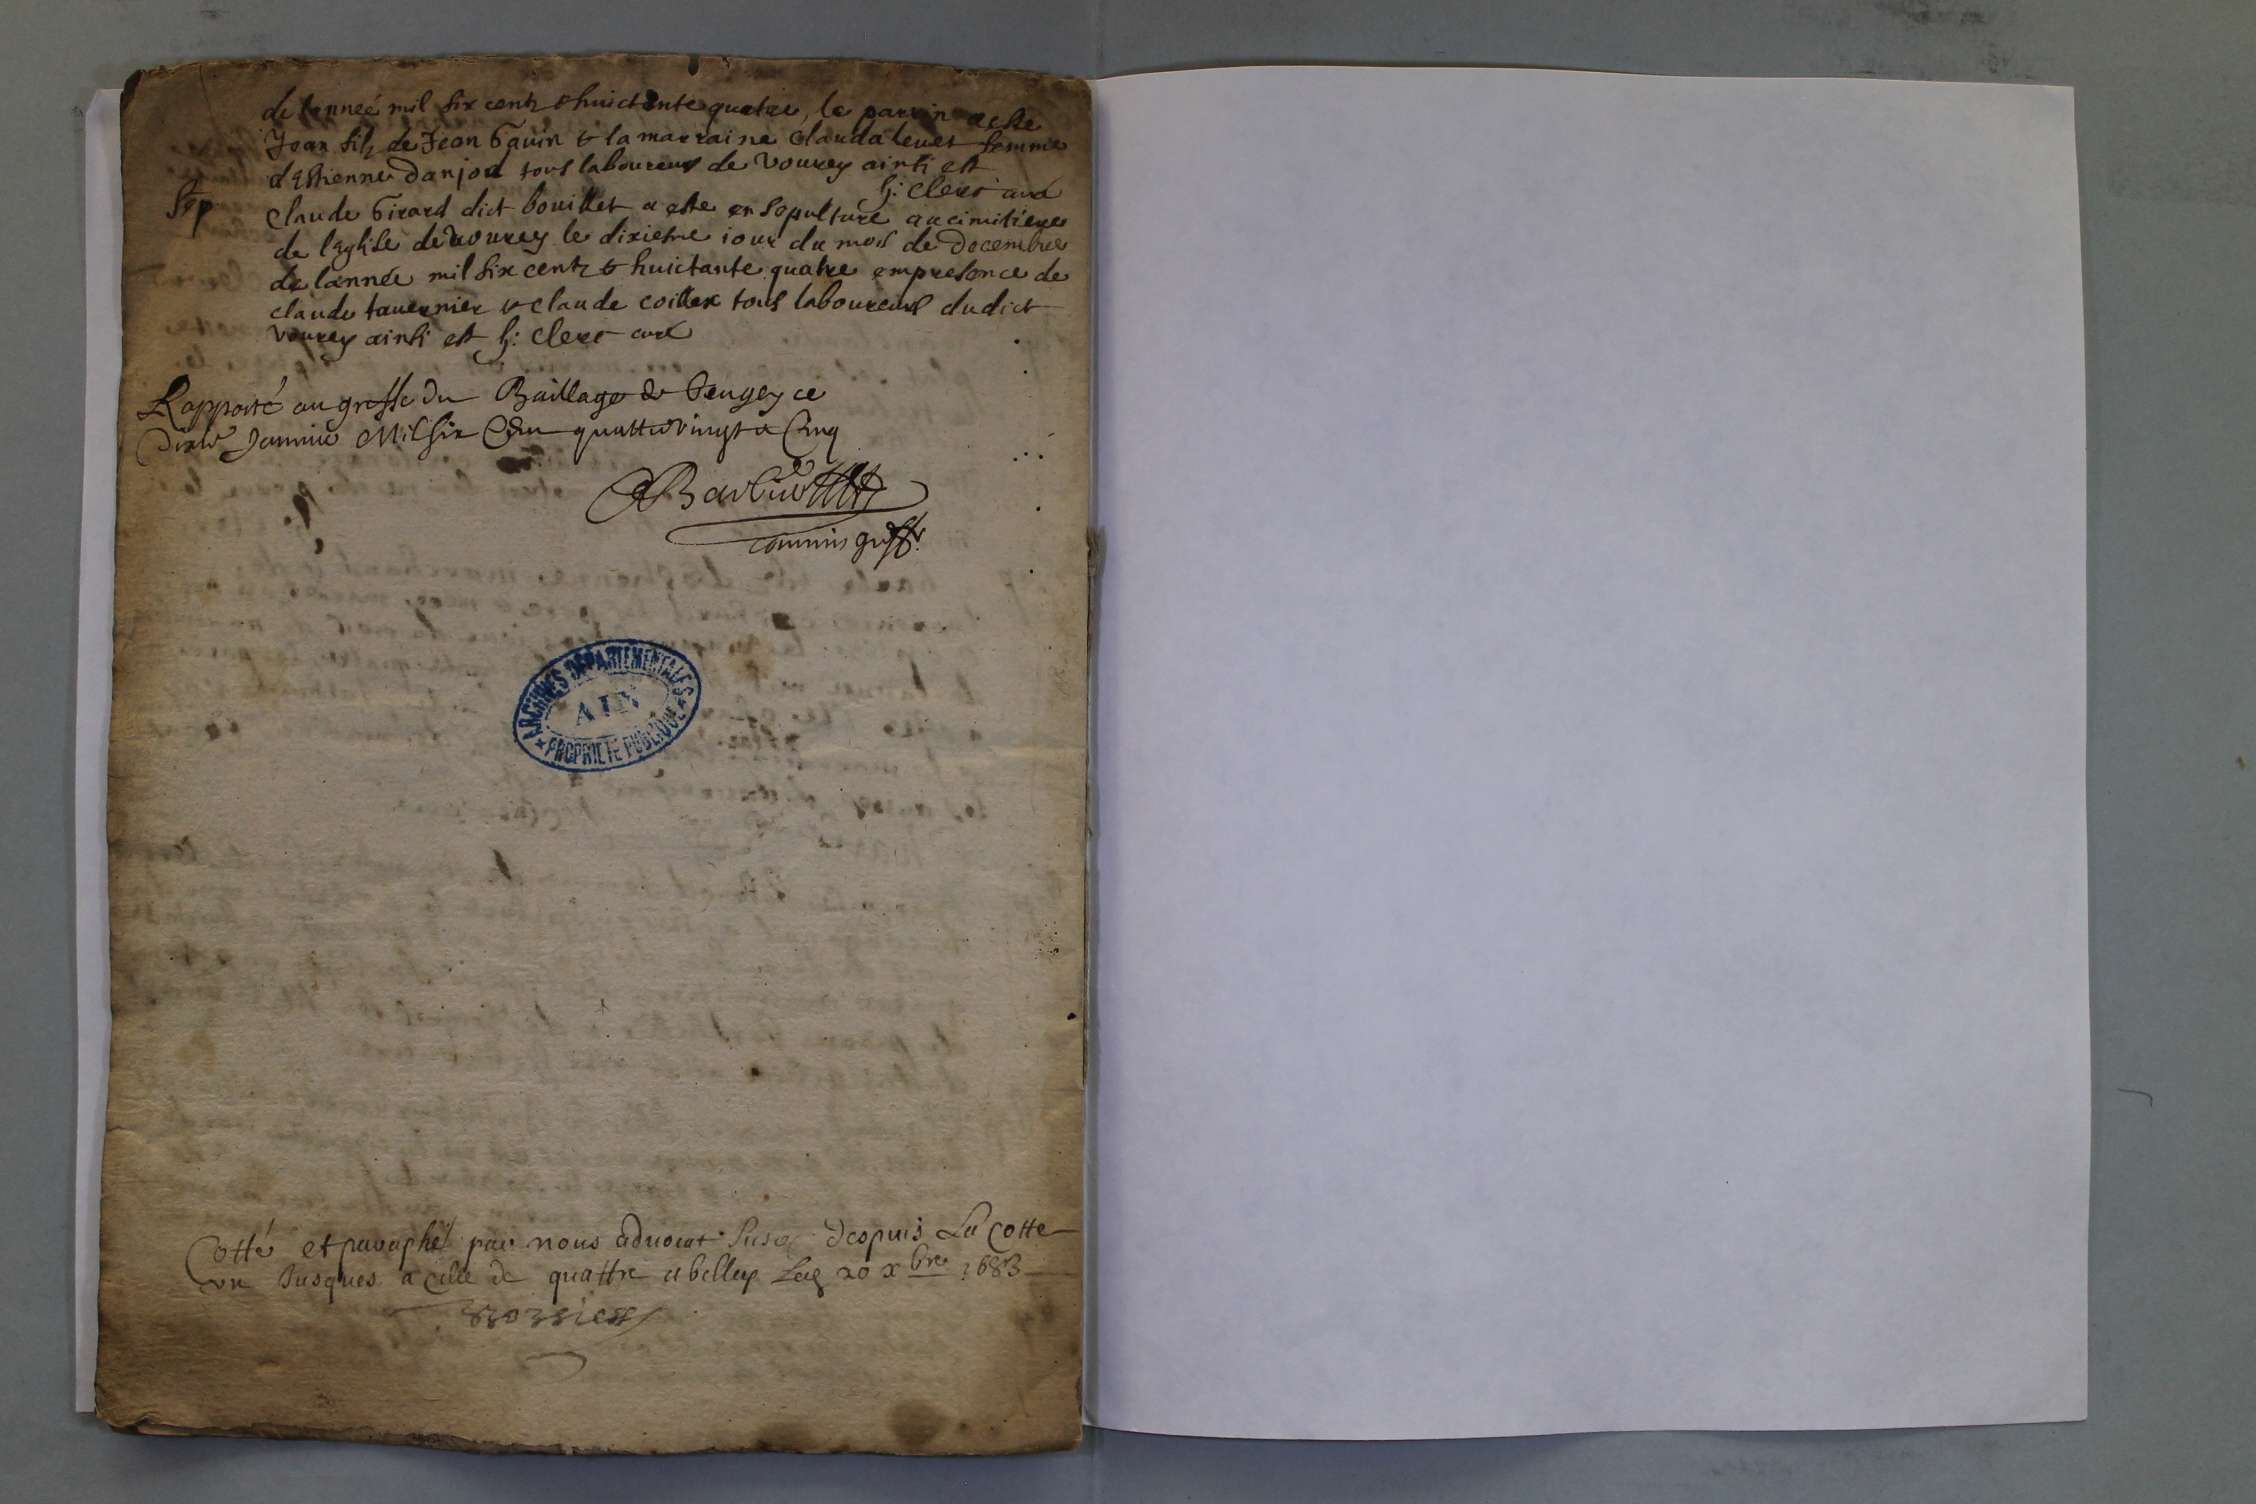 de lannee mil six centz & huictante quatre, le parrin a este
Jean filz de Jean Gauin & la marraine Clauda leuet femme
dEstienne danjou tous laboureurs de Vourey ainsi est
h: Clerc curé
Sep
Claude Girard dict bouillet a este en sepulture au cimitiere
de leglise de vourey le dixiesme iour du mois de Decembre
de lannée mil six centz & huictante quatre em presence de
claude tauernier & claude coillex tous laboureurs dudict
Vourey ainsi est h: Clerc curé
Rapporté au greffe du Baillage de beugey ce
Janvier Mil six Cent quattrevingt & Cinq
Barbier
commis greff.
ARCHIVES DÉPARTEMENTALES
AIN
★ PROPRIÉTÉ PUBLIQUE ★
Cotté et paraphé par nous aduocat depuis La Cotte
vn Jusques a celle de quattre a belley 20 xbre 1683